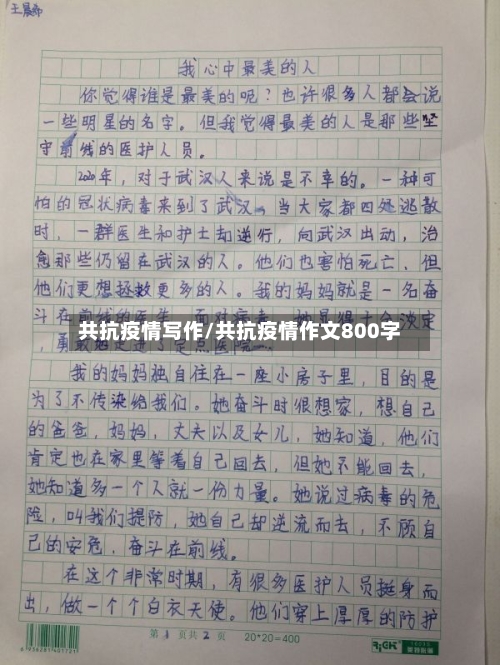 王晨希
我心中最美的人
你觉得谁是最美的呢？也许很多人都会说
一些明星的名字。但我觉得最美的人是那些坚
守前线的医护人员。
2020年，对于武汉人来说是不幸的。一种可
怕的冠状病毒来到了武汉。当大家都四处逃散
时，一群医生和护士却逆行，向武汉出动，治
愈那些仍留在武汉的人。他们也害怕死亡，但
他们更想拯救更多的人。我的妈妈就是一名奋
斗在前线的医生。面对病毒，她显得十分淡定
共抗疫情写作/共抗疫情作文800字
勇敢
我的妈妈独自住在一座小房子里，目的是
为了不传染给我们。她奋斗时很想家，想自己
的爸爸，妈妈，丈夫以及女儿，她知道，他们
肯定也在家里等着自己回去，但她不能回去，
她知道多一个人就一份力量。她说过病毒的危
险，叫我们提防，她自己却逆流而去，不顾自
己的安危，奋斗在前线。
在这个非常时期，有很多医护人员挺身而
出，做一个个白衣天使。他们穿上厚厚的防护
第1页共2页 20*20=400
6956281401721